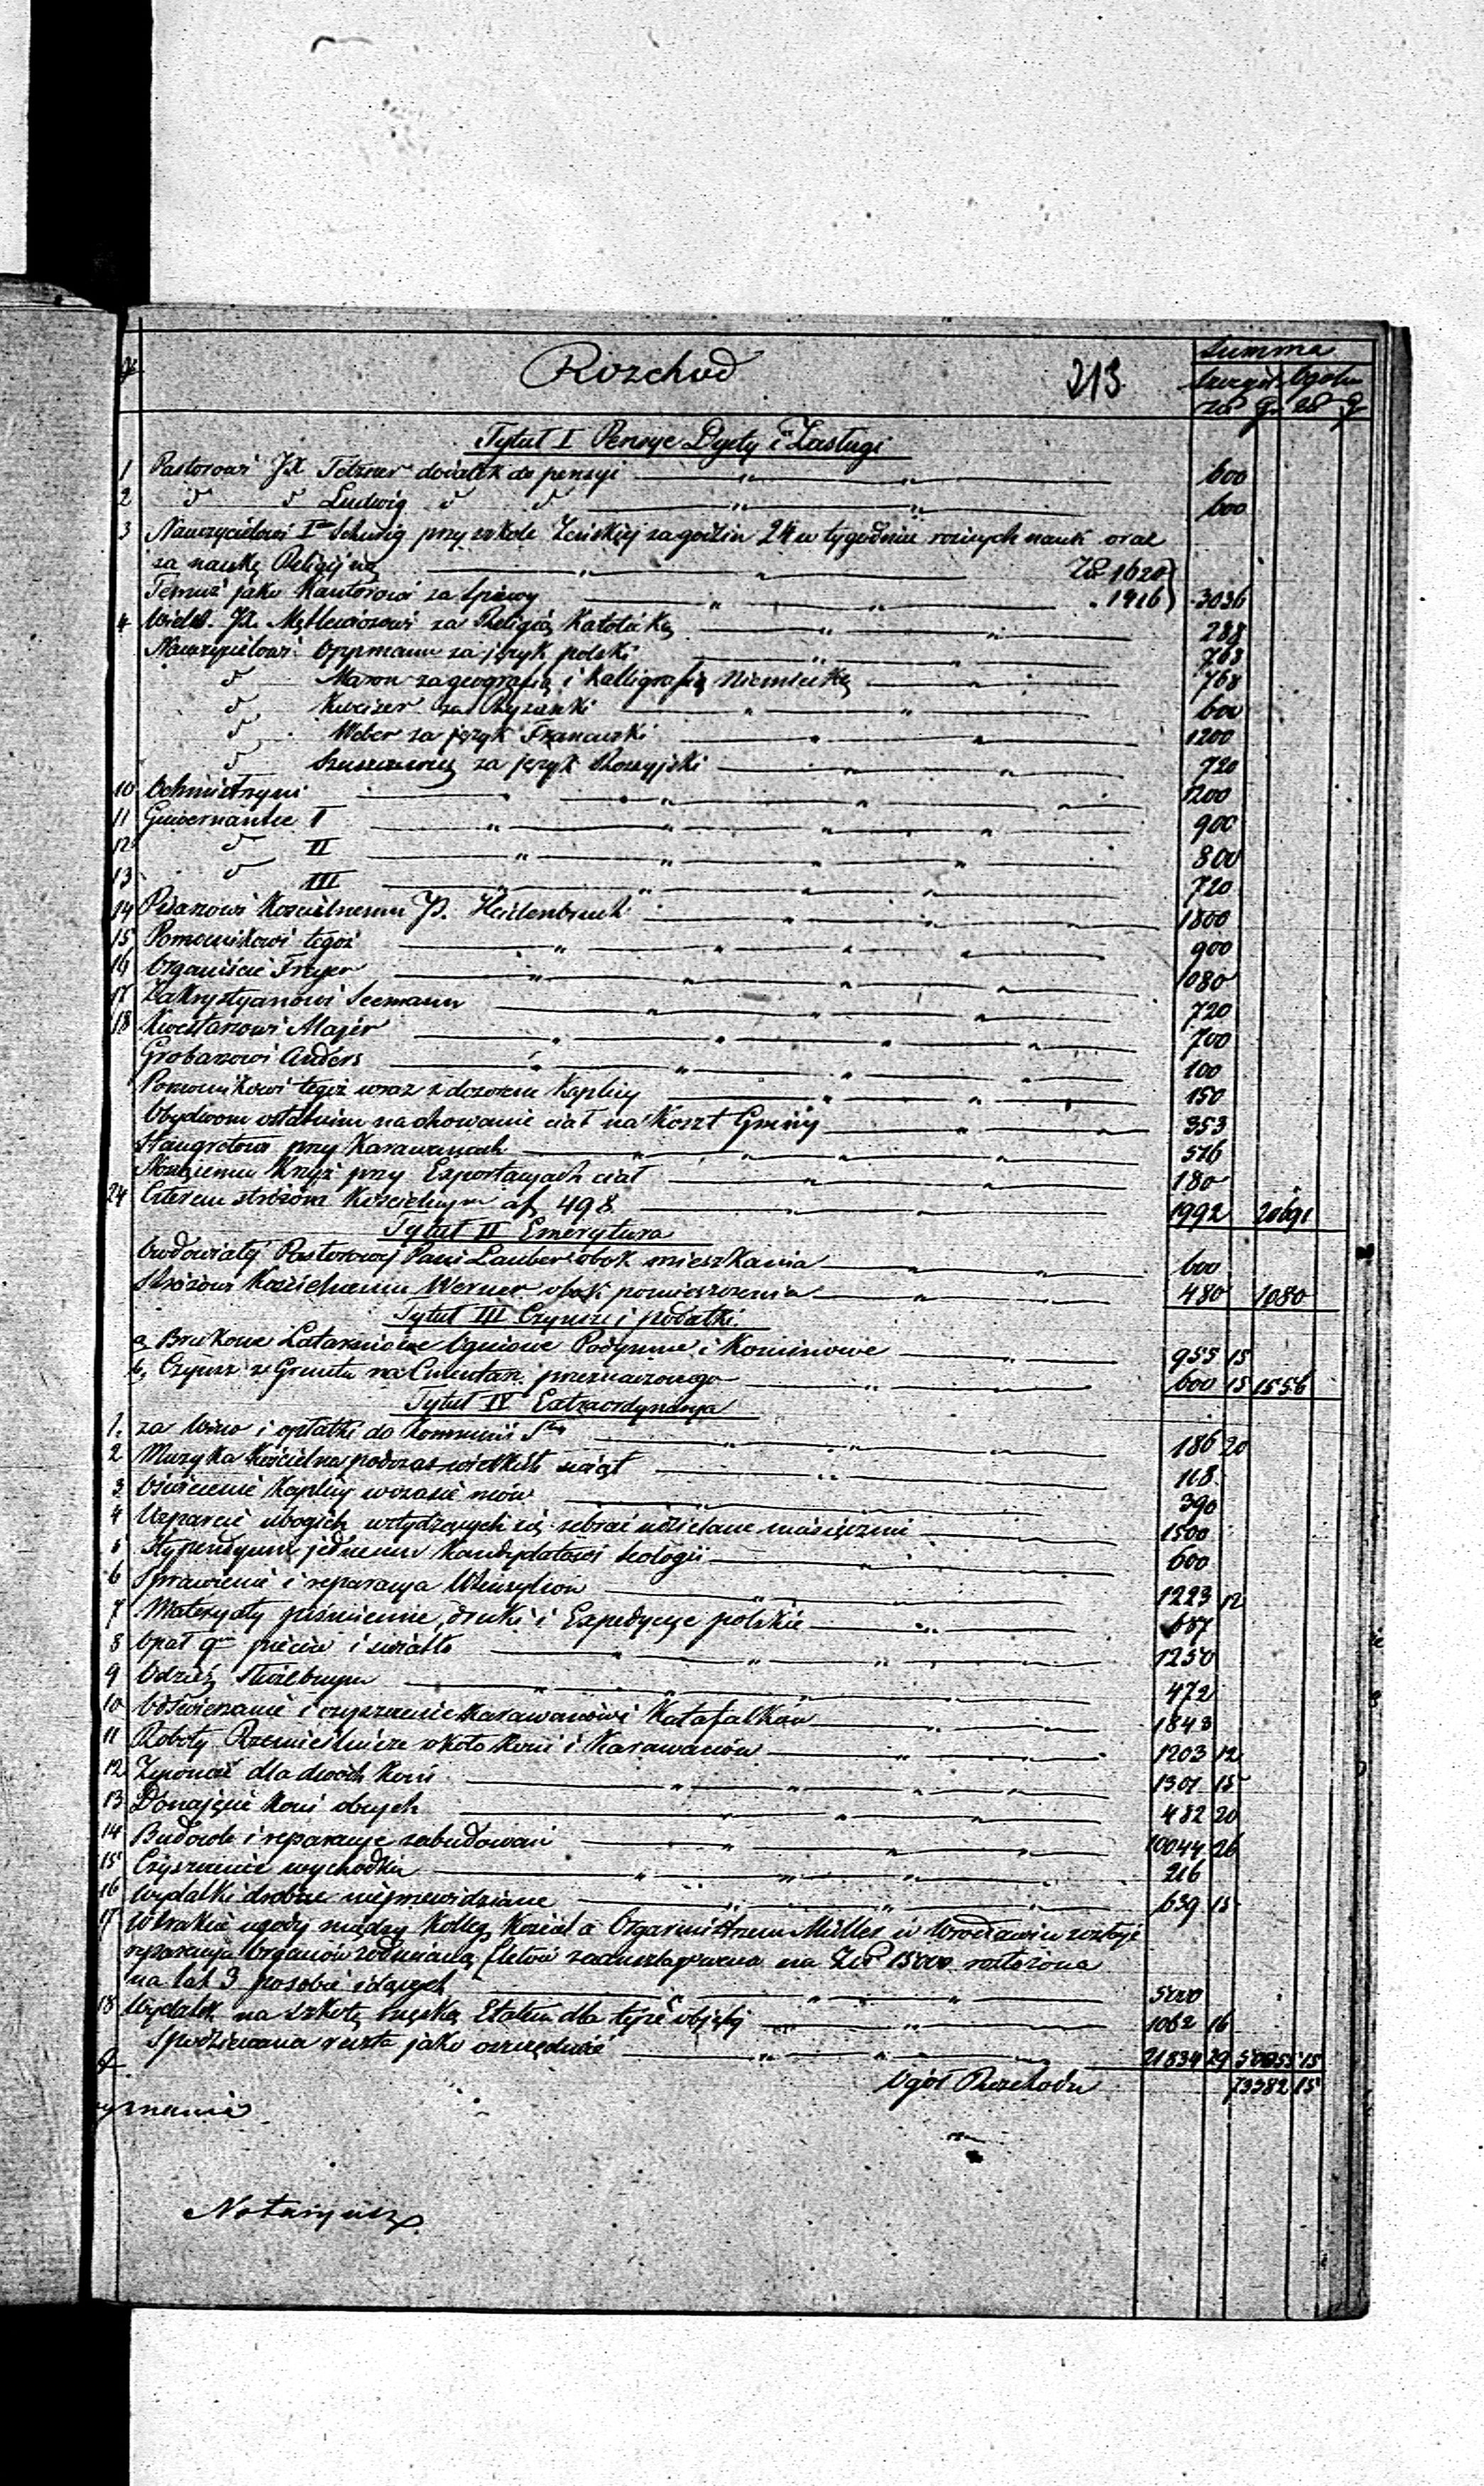 Rozchod 213 Summa
Szczegół. Ogólna
Zł gr Zł gr
Tytuł I Pensye Dyety i Zasługi
1 Pastorowi JX Tetzner dodatek do pensyi 600
2 d d Ludwig d d 600
3 Nauczycielowi Schulig przy szkole Zeńskiéj za godzin 24 w tygodniu roznych nauk oraz
za naukę Religijną Zł 1620
Temuż jako Kantorowi za śpiewy 1416 3036
4 JX. Mętlewiczowi za Religią Katolicką 288
Nauczycielowi Oppmann za język polski 768
d Maron za geografią i kalligrafią Niemiecką 768
d za Rysunki 600
d Weber za język Francuski 1200
d za język Rossyjski 720
10 Ochmistrzyni 1200
11 Guwernantce I 900
12 d II 800
13 d III 720
14 Pisarzowi Kościelnemu P. 1800
15 Pomocnikowi tegoż 900
16 Organiście Freyer 1080
17 Zakrystyanowi Seemann 720
18 Kwestarzowi Majer 700
Grabarzowi Anders 100
Pomocnikowi tegoż wraz z dozorem Kaplicy 150
Obydwom ostatnim na chowanie ciał na Koszt Gminy 353
Stangretowi przy Karawanach 576
Noszącemu Krzyż przy Exportacyach ciał 180
24 Czterem stróżom Kościelnym a f 498 1992 20691
Tytuł II Emerytura
Owdowiałéj Pastorowéj Pani Lauber obok mieszkania 600
Stróżowi Kościelnemu Werner obok pomieszczenia 480 1080
Tytuł III Czynsze i podatki
a, Brukowe Latarniowe Ogniowe Podymne i Kominowe 955 15
b, Czynsz z Gruntu na Cmentarz przeznaczonego 600 15 1556
Tytuł IV Extraordynarya
1. za Wino i opłatki do Kommunii Stej 186 20
2 Muzyka Kościelna podczas wielkich świąt 118
3 Oświecenie Kaplicy w czasie mów 390
4 Wsparcie ubogich wstydzących się żebrać udzielane miesięcznie 1500
5 Stypendyum jednemu Kandydatowi teologii 600
6 Sprawienie i reparacya Utensyliów 1223 12
7 Materyały piśmienne, druki i Expedycye polskie 687
8 Opał 9 pieców i światło 1250
9 Odzież Służbowym 472
10 Odświeżanie i czyszczenie Karawanów i Katafalków 1843
11 Roboty Rzemieślnicze około Koni i Karawanów 1203 12
12 Żywność dla dwóch Koni 1301 15
13 Donajęcie Koni obcych 482 20
14 Budowle i reparacye zabudowań 10044 26
15 Czyszczenie wychodków 216
16 Wydatki drobne nieprzewidziane 639 15
17 W trakcie ugody między Kolleg. Kościel. a Organmistrzem Müller w Wrocławiu zostaje
reparacya Organów na Złp 15000 rozłożona
na lat 3 po sobie idących 5000
18 Wydatek na szkołę męską Etatem dla tejże objęty 1062 16
Spodziewana reszta jako oszczędność 21834 29 50055 15
Ogół Rozchodu 73382 15
Notaryusz